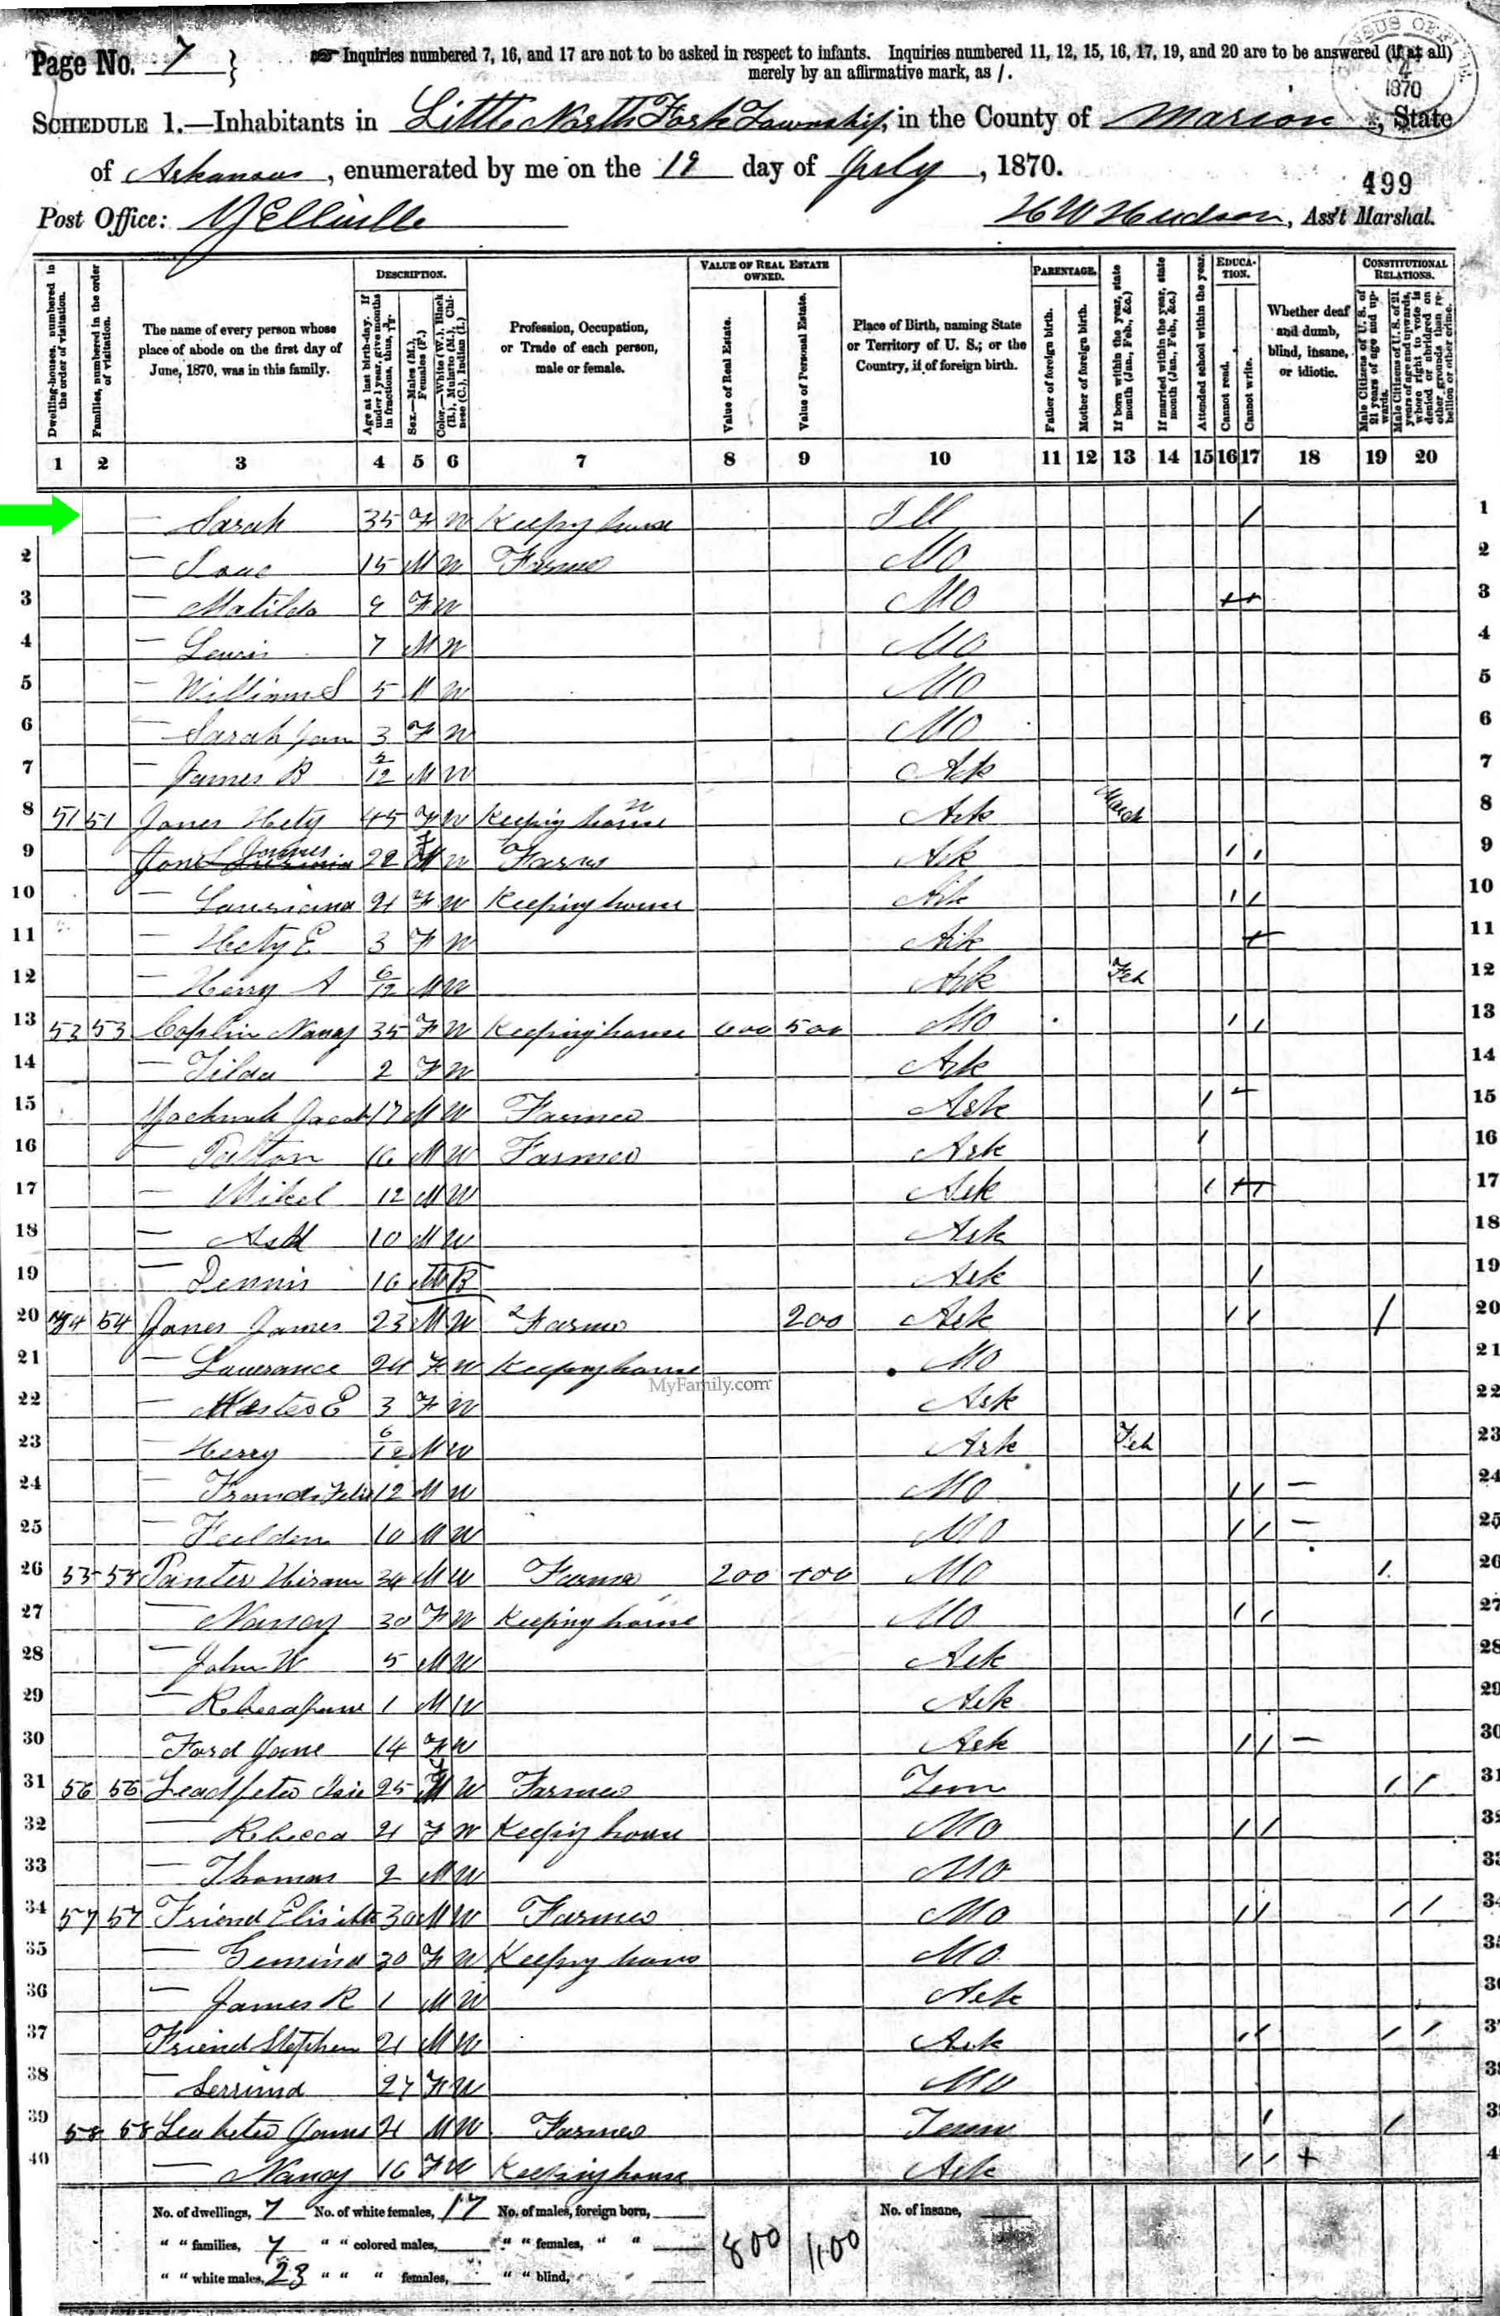 Page No. 7 } Inquiries numbered 7, 16, and 17 are not to be asked in respect to infants. Inquiries numbered 11, 12, 15, 16, 17, 19, and 20 are to be answered (if at all)
merely by an affirmative mark, as /.
4
1870
SCHEDULE 1.—Inhabitants in Little North Fork Township, in the County of Marion, State
of Arkansas, enumerated by me on the 19 day of July, 1870.
499
Post Office: Yellville H W Hudson, Ass't Marshal.
Dwelling-houses, numbered in the order of visitation.
Families, numbered in the order of visitation.
The name of every person whose place of abode on the first day of June, 1870, was in this family.
DESCRIPTION.
Age at last birth-day. If under 1 year, give months in fractions, thus,
Sex.—Males (M.), Females (F.)
Color.—White (W.), Black (B.), Mulatto (M.), Chinese (C.), Indian (I.)
Profession, Occupation, or Trade of each person, male or female.
VALUE OF REAL ESTATE OWNED.
Value of Real Estate.
Value of Personal Estate.
Place of Birth, naming State or Territory of U. S.; or the Country, if of foreign birth.
PARENTAGE.
Father of foreign birth.
Mother of foreign birth.
If born within the year, state month (Jan., Feb., &c.)
If married within the year, state month (Jan., Feb., &c.)
EDUCATION.
Attended school within the year.
Cannot read.
Cannot write.
Whether deaf and dumb, blind, insane, or idiotic.
CONSTITUTIONAL RELATIONS.
Male Citizens of U. S. of 21 years of age and upwards.
Male Citizens of U. S. of 21 years of age and upwards, whose right to vote is denied or abridged on other grounds than rebellion or other crime.
1 2 3 4 5 6 7 8 9 10 11 12 13 14 15 16 17 18 19 20
— Sarah 35 F W Keeping house Ill / 1
2 — Isaac 15 M W Farmer Mo 2
3 — Matilda 9 F W Mo 3
4 — Lewis 7 M W Mo 4
5 — William S 5 M W Mo 5
6 — Sarah Jan 3 F W Mo 6
7 — James B 2/12 M W Ark 7
8 51 51 Jones Hety 45 F W Keeping house Ark March 8
9 Jones James 22 M W Farmer Ark / / 9
10 — Lousiana 21 F W Keeping house Ark / / 10
11 — Hety E 3 F W Ark 11
12 — Henry A 6/12 M W Ark Feb 12
13 53 53 Coplin Nancy 35 F W Keeping house 600 500 Mo / / 13
14 — Tilda 2 F W Ark 14
15 Jacob 17 M W Farmer Ark / 15
16 — 16 M W Farmer Ark / 16
17 — Mikel 12 M W Ark / 17
18 — 10 M W Ark 18
19 — Dennis 16 M B Ark / 19
20 54 54 Jones James 23 M W Farmer 200 Ark / / / 20
21 — Lawrance 24 F W Keeping house Mo 21
MyFamily.com
22 — Hester E 3 F W Ark 22
23 — Henry 6/12 M W Ark Feb 23
24 — 12 M W Mo / / — 24
25 — Feilden 10 M W Mo / / — 25
26 55 55 Panter Hiram 34 M W Farmer 200 400 Mo / 26
27 — Nancy 30 F W Keeping house Mo / / 27
28 — John W 5 M W Ark 28
29 — Rebecca Jane 1 M W Ark 29
30 Ford Jane 14 F W Ark / / — 30
31 56 56 25 M W Farmer Tenn / / 31
32 — Rebecca 21 F W Keeping house Mo / / 32
33 — Thomas 2 M W Mo 33
34 57 57 Friend 30 M W Farmer Mo / / / / 34
35 — 30 F W Keeping house Mo 35
36 — James R 1 M W Ark 36
37 Friend Stephen 21 M W Ark / / / / 37
38 — 27 F W Mo 38
39 58 58 James 21 M W Farmer Tenn / / 39
40 — Nancy 16 F W Keeping house Ark / / + 4
No. of dwellings, 7 No. of white females, 17 No. of males, foreign born, 800 1100 No. of insane,
" " families, 7 " " colored males, " " females, " "
" " white males, 23 " " " females, " " blind,